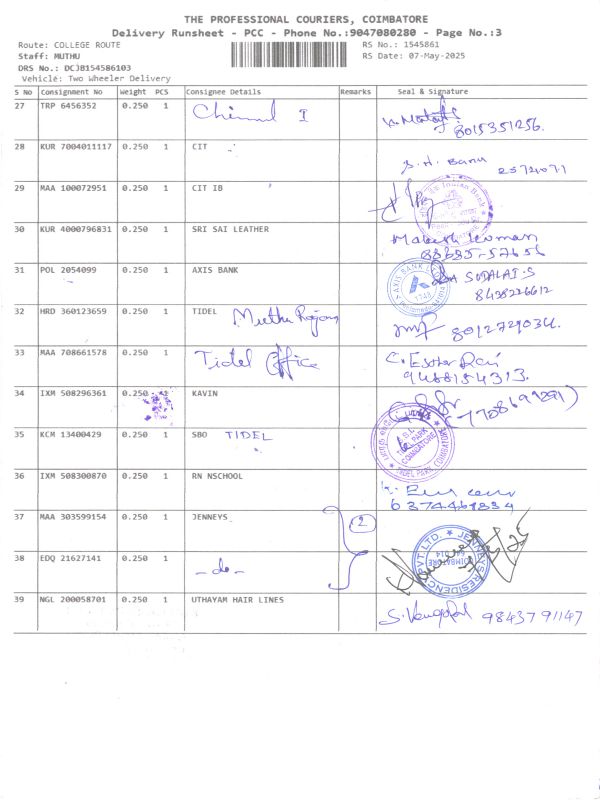 THE PROFESSIONAL COURIERS, COIMBATORE
Delivery Runsheet - PCC - Phone No.:9047080280 - Page No.:3
Route: COLLEGE ROUTE RS No.: 1545861
Staff: MUTHU RS Date: 07-May-2025
DRS No.: DCJ8154586103
Vehicle: Two Wheeler Delivery
S No Consignment No Weight PCS Consignee Details Remarks Seal & Signature
27 TRP 6456352 0.250 1 I
8015351256.
28 KUR 7004011117 0.250 1 CIT S.H. Banu
2572071
29 MAA 100072951 0.250 1 CIT IB Indian Bank
30 KUR 4000796831 0.250 1 SRI SAI LEATHER Mahesh Kumar
88685-57656
31 POL 2054099 0.250 1 AXIS BANK AXIS BANK SUDALAI.S
8438226612
32 HRD 360123659 0.250 1 TIDEL Muthu 8012720344.
33 MAA 708661578 0.250 1 Tidel Office C. Esther Rani
9488154313.
34 IXM 508296361 0.250 KAVIN (7708699291)
35 KCM 13400429 0.250 1 SBO TIDEL TIDEL PARK COIMBATORE
36 IXM 508300870 0.250 1 RN NSCHOOL
6374461834
37 MAA 303599154 0.250 1 JENNEYS 2 JENNEYS RESIDENCY PVT. LTD.
COIMBATORE
38 EDQ 21627141 0.250 1 -do-
39 NGL 200058701 0.250 1 UTHAYAM HAIR LINES S. Venugopal 9843791147